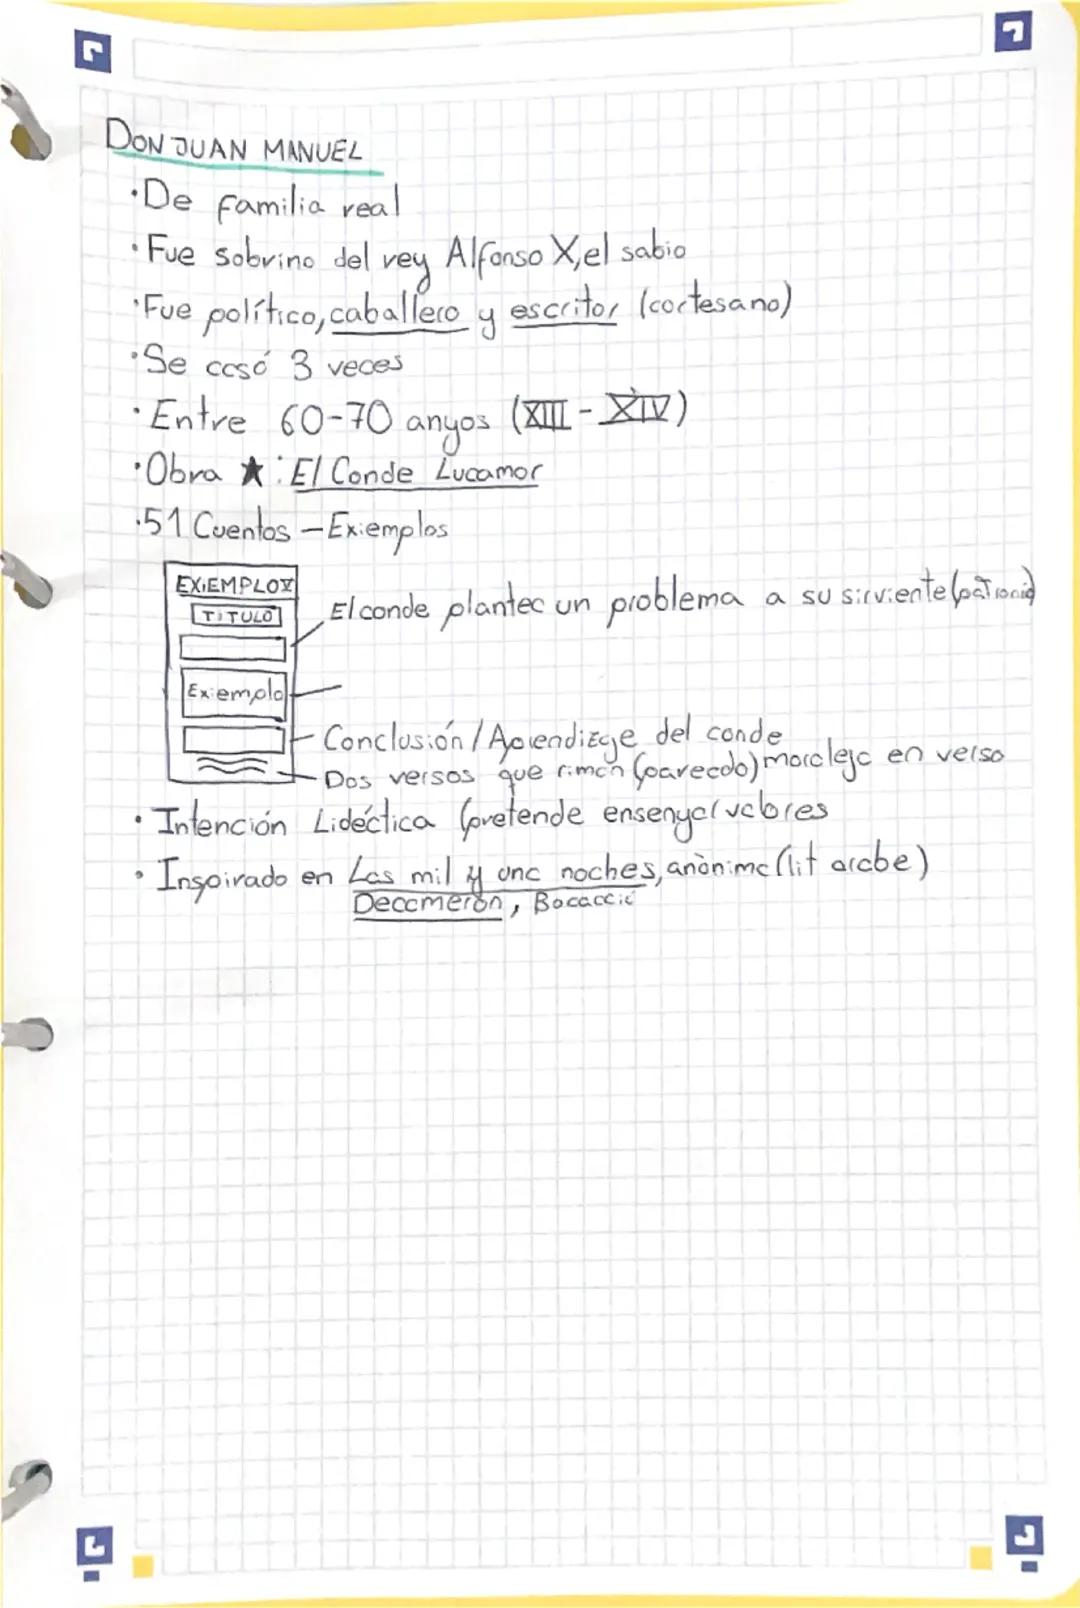 DON JUAN MANUEL
·De familia real
·Fue sobrino del rey Alfonso X, el sabio
·Fue político, caballero y escritor (cortesano)
·Se casó 3 veces
·Entre 60-70 anyos (XIII - XIV)
·Obra ★: El Conde Lucamor
·51 Cuentos - Exiemplos
EXiEMPLO X
TITULO
El conde plantea un problema a su sirviente (patronio)
Exiemplo
Conclusión / Aprendizaje del conde
Dos versos que riman (pareado) moraleja en verso
· Intención Lidáctica (pretende ensenyar valores
· Inspirado en Las mil y una noches, anònima (lit arabe)
Decameròn, Bocaccio